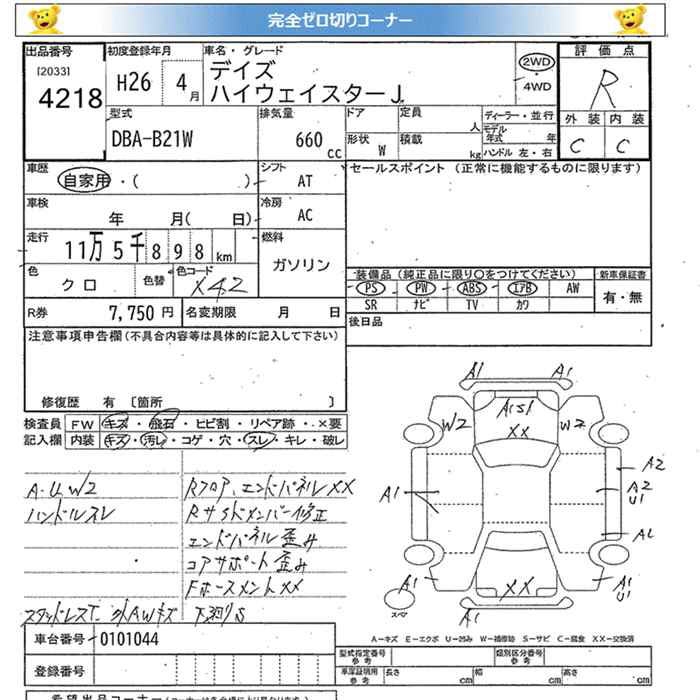 完全ゼロ切りコーナー
出品番号 初度登録年月 車名・グレード 評価点
[2033]
4218 H26 4月 デイズ 2WD R
ハイウェイスターJ 4WD
外装 内装
型式 排気量 ドア 定員 人 ディーラー・並行
DBA-B21W 660cc 形状 W 積載 kg モデル年式 年 C C
ハンドル 左・右
車歴 シフト セールスポイント (正常に機能するものに限ります)
自家用・( ) AT
車検 冷房
年 月( 日) AC
走行 燃料
11万5千898km ガソリン
色 色替 色コード 装備品 (純正品に限り○をつけてください) 新車保証書
クロ X42 PS PW ABS エアB AW 有・無
SR ナビ TV カワ
R券 7,750円 名変期限 月 日
後日品
注意事項申告欄 (不具合内容等は具体的に記入して下さい)
修復歴 有 〔箇所 〕
検査員 FW キズ・飛石・ヒビ割・リペア跡・×要
記入欄 内装 キズ・汚れ・コゲ・穴・スレ・キレ・破レ
A1 A1
W2 A1S1 W2
XX
A1 A2
A2
U1
A1 A1
U1
XX
A1
A・U W2 Rフロア、エンドパネルXX
ハンドルスレ Rサイドメンバー修正
エンドパネル歪み
コアサポート歪み
FホースメントXX
スタッドレスT 外AWキズ 下廻りS
A－キズ E－エクボ U－凹み W－補修跡 S－サビ C－腐食 XX－交換済
車台番号 0101044
登録番号
型式指定番号 参考 類別区分番号 参考
車庫証明用 参考 長さ cm 幅 cm 高さ cm
希望出品コーナー